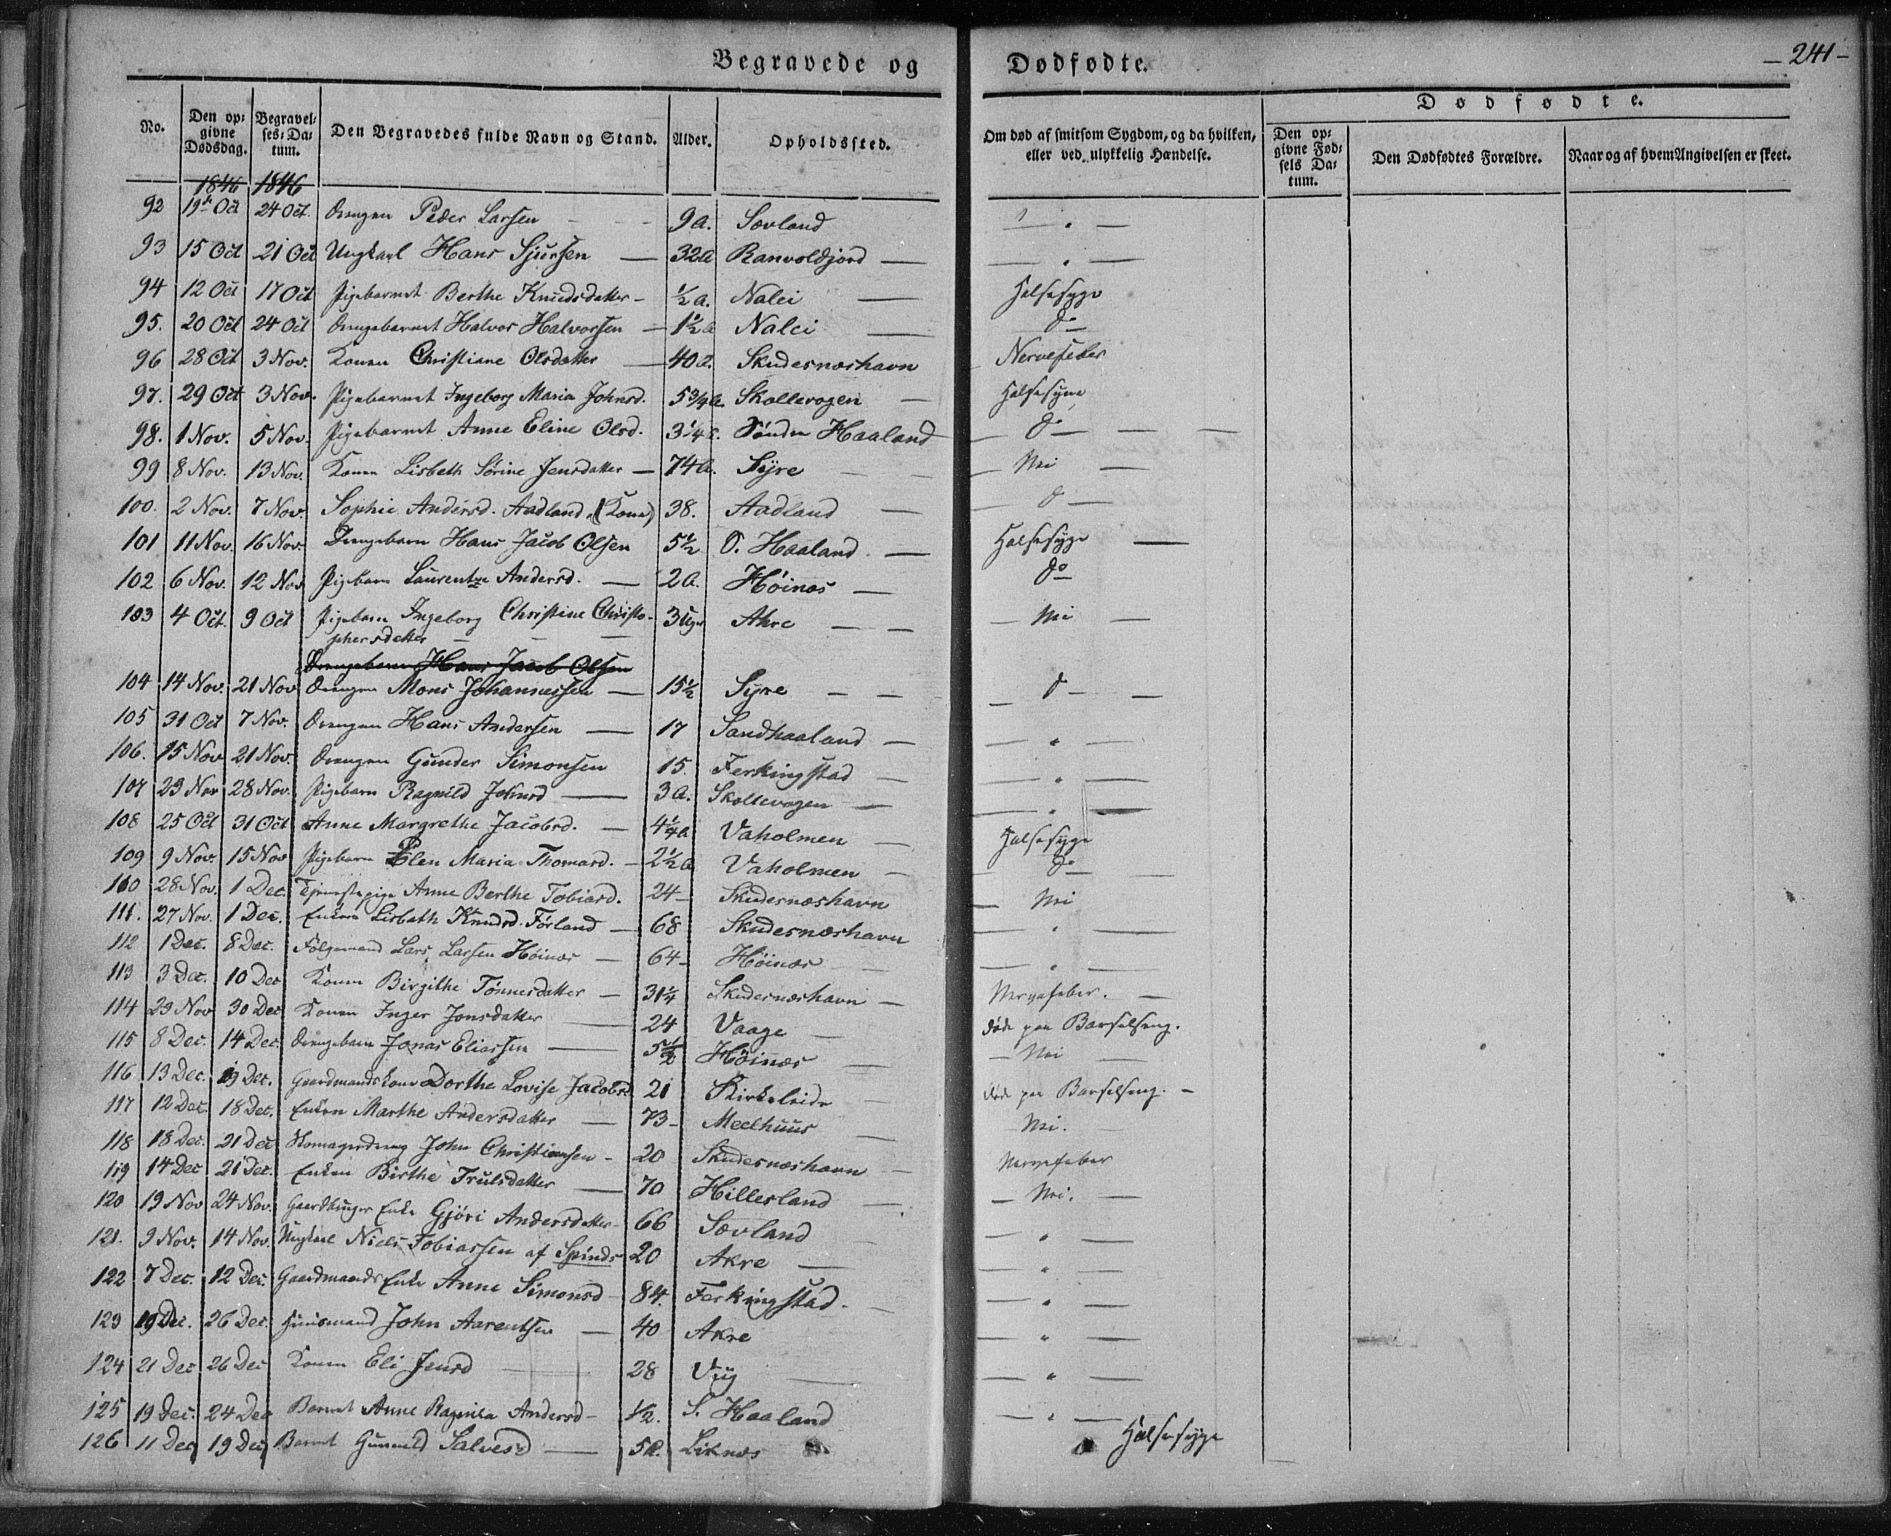 Begravede og Dødfødte. – 241 –
No. | Den opgivne Dødsdag. | Begravelses-Datum. | Den Begravedes fulde Navn og Stand. | Alder. | Opholdssted. | Om død af smitsom Sygdom, og da hvilken, eller ved ulykkelig Hændelse. | Dødfødte. Den opgivne Fødsels Datum. | Den Dødfødtes Forældre. | Naar og af hvem Angivelsen er skeet.
1846 1846
92 19de Oct 24 Oct. Drengen Peder Larsen 9 a. Sævland "
93 15 Oct 21 Oct Ungkarl Hans Sjursen 32 a Ranvoldjord "
94 12 Oct 17 Oct Pigebarnet Berthe Knudsdatter ½ a. Nalei Halsesyge
95. 20 Oct 24 Oct Drengebarnet Halvor Halvorsen 1½ a Nalei do
96 28 Oct 3 Nov. Konen Christiane Olsdatter 40 a. Skudesnæshavn Nervefeber
97. 29 Oct 3 Nov. Pigebarnet Ingeborg Maria Johnsd. 5¾ a. Skollevogen Halsesyge
98. 1 Nov. 5 Nov. Pigebarnet Anne Eline Olsd. 3¼ a. Sönder Haaland do
99 8 Nov. 13 Nov. Konen Lisbeth Sørine Jensdatter 74 a. Syre Nei
100. 2 Nov. 7 Nov. Sophie Andersd. Aadland. (Kone) 38. Aadland do
101 11 Nov. 16 Nov. Drengebarn Hans Jacob Olsen 5½ O. Haaland Halsesyge
102 6 Nov. 12 Nov Pigebarn Laurentze Andersd. 2 a. Höinæs do
103 4 Oct. 9 Oct Pigebarn Ingeborg Christine Christo-
phersdatter 3 Uger Akre Nei
Drengebarn Hans Jacob Olsen
104 14 Nov. 21 Nov Drengen Mons Johannessen 15½ Syre do
105 31 Oct 7 Nov. Drengen Hans Andersen 17 Sandhaaland "
106. 15 Nov 21 Nov. Drengen Gunder Simonsen 15. Ferkingstad "
107 23 Nov 28 Nov. Pigebarn Ragnild Johnsd 3 a. Skollevogen "
108 25 Oct 31 Oct Anne Margrethe Jacobsd. 4¼ a Vaholmen Halsesyge
109 9 Nov. 15 Nov Pigebarn Elen Maria Thomasd. 2½ a Vaholmen do
110 28 Nov. 1 Dec. Tjenestepige Anne Berthe Tobiasd. 24 Skudesnæshavn Nei
111. 27 Nov. 1 Dec. Enken Lisbeth Knudsd. Førland 68 Skudesnæshavn "
112 1 Dec. 8 Dec. Følgemand Lars Larsen Höinæs 64 Höinæs "
113 3 Dec. 10 Dec Konen Birgithe Tönnesdatter 31¼ Skudesnæshavn Nervefeber.
114 29 Nov 30 Dec Konen Inger Jonsdatter 24 Vaage døde paa Barselseng.
115 8 Dec. 14 Dec. Drengebarn Jonas Eliassen 5½ Höinæs Nei
116 13 Dec. 19 Dec. Gaardmandskone Dorthe Lovise Jacobsd 21 Kirkeleide død paa Barselseng.
117 12 Dec. 18 Dec. Enken Marthe Andersdatter 73 Meelhuus Nei.
118 18 Dec. 21 Dec John Christiansen 20 Skudesnæshavn Nervefeber
119 14 Dec 21 Dec. Enken Birthe Trulsdatter 70 Hillesland Nei.
120 19 Nov 24 Nov. Gaardbruger Enke Gjöri Andersdatter 66 Sævland "
121. 9 Nov. 14 Nov. Ungkarl Niels Tobiassen af Spinds 20 Akre "
122 7 Dec. 12 Dec. Gaardmands Enke Anne Simonsd 84. Ferkingstad. "
123 19 Dec. 26 Dec. Huusmand John Aarentsen 40 Akre "
124 21 Dec 26 Dec Konen Eli Jensd 28 Viig "
125 19 Dec. 24 Dec Barnet Anne Ragnila Andersd ½. S. Haaland "
126 11 Dec 19 Dec Barnet Gunnild Salvesd 5 a. Liknæs Halsesyge